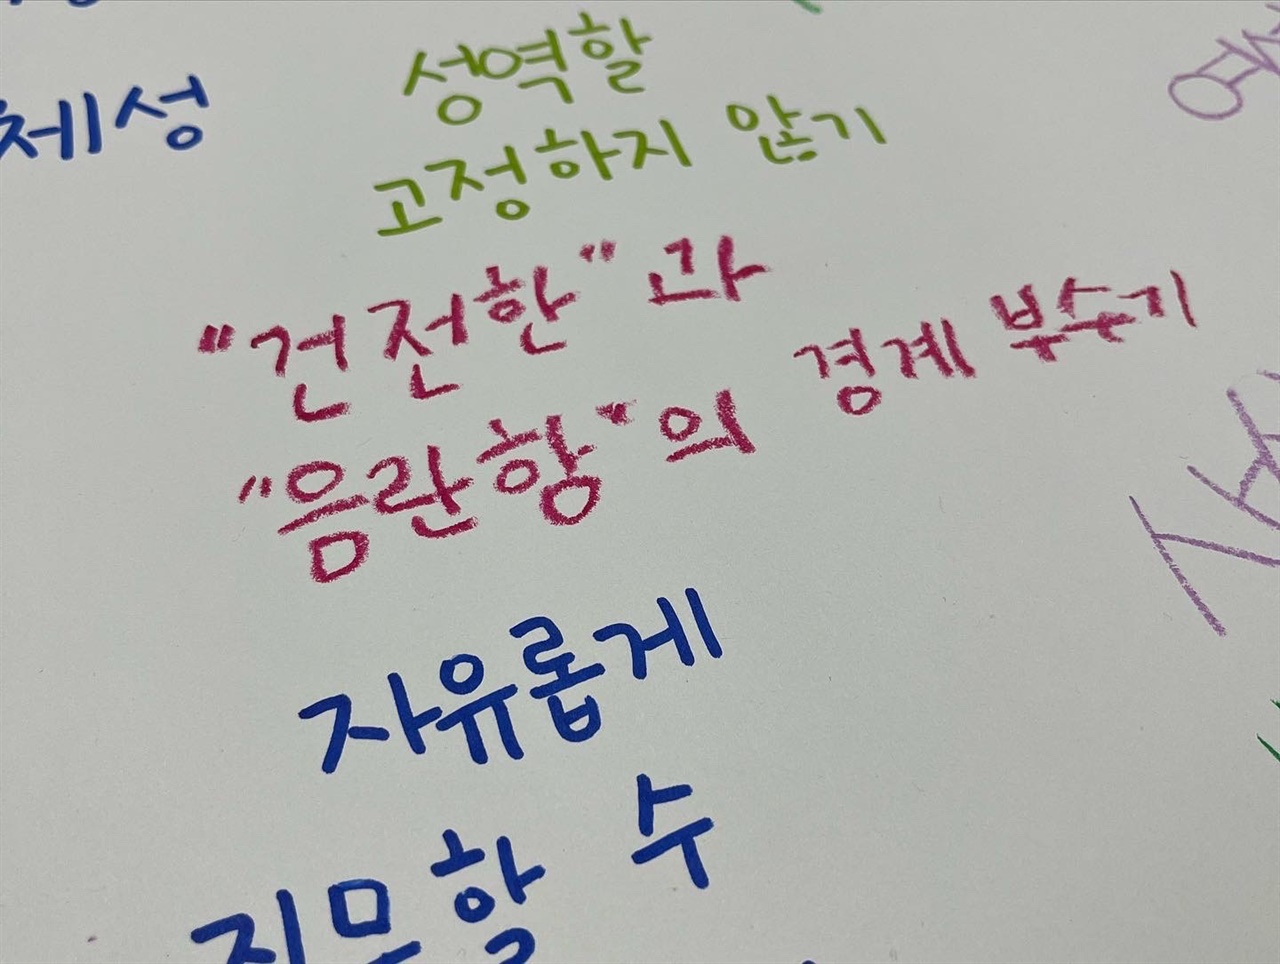 체성
성역할
고정하지 않기
"건전한"과
"음란항"의 경계 부수기
자유롭게
질문할 수